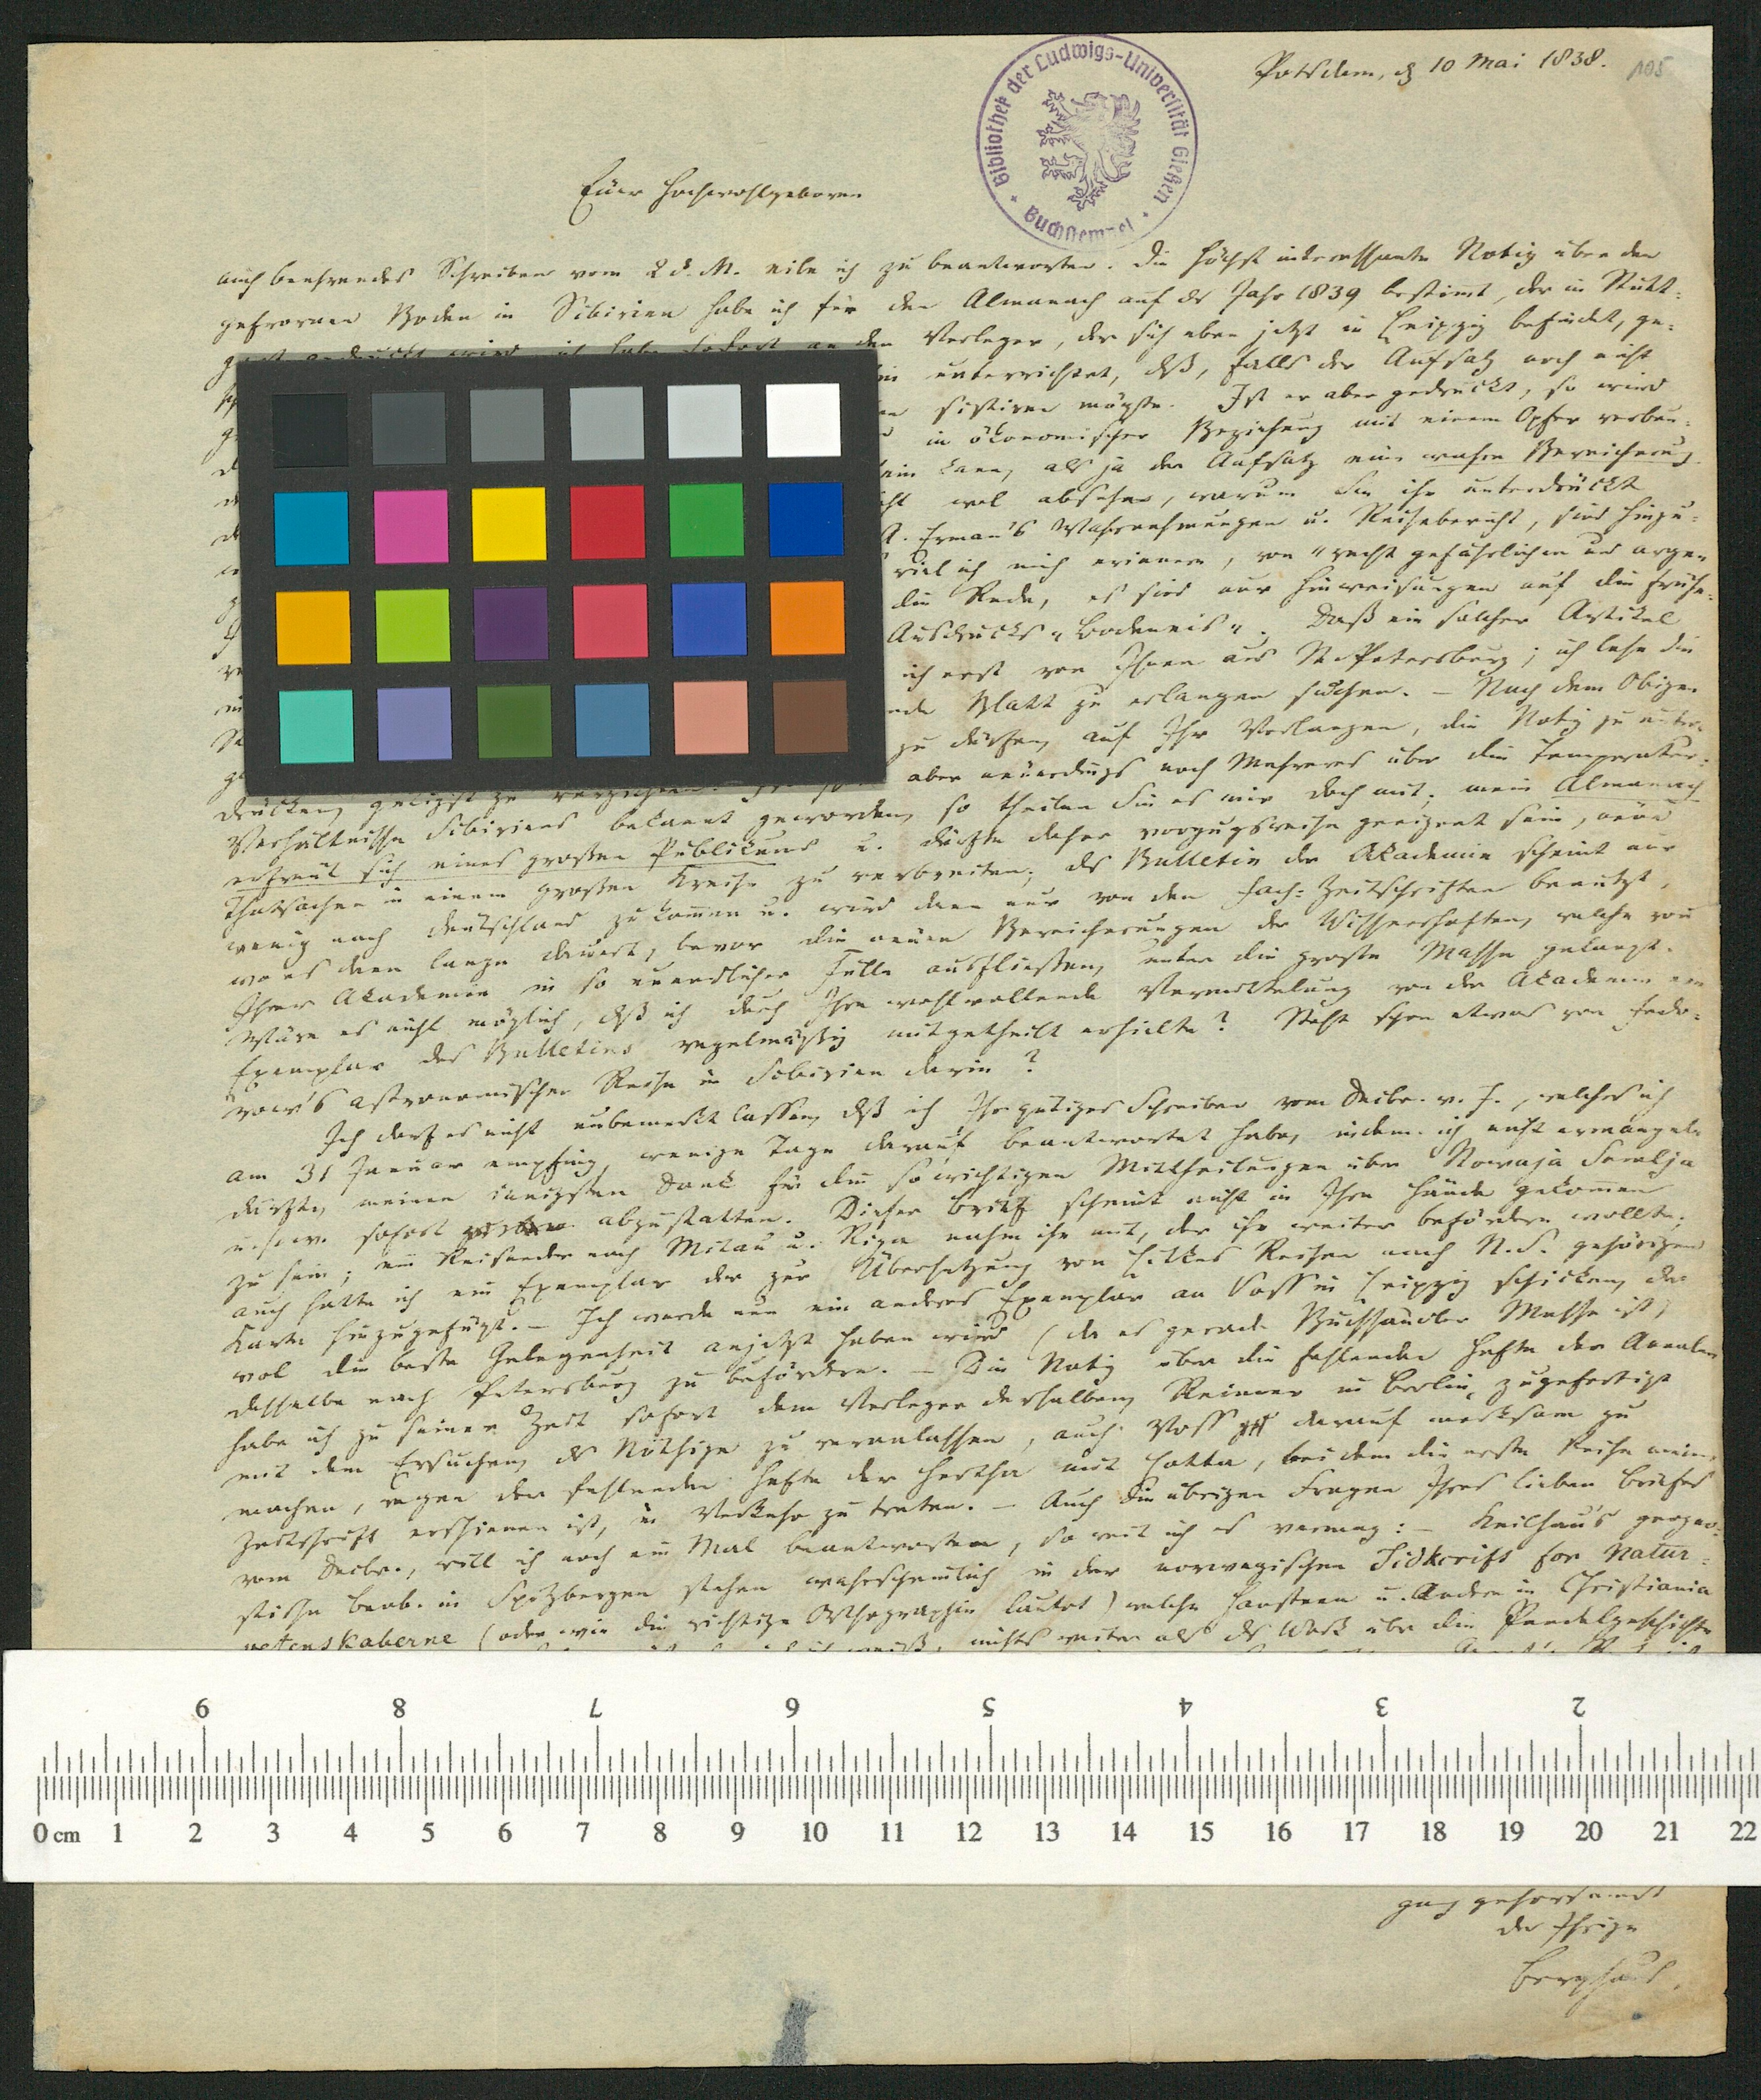 Potsdam, d 10 Mai 1838.
105
Bibliothek der Ludwigs-Universität Gießen
Buchstempel
Euer Hochwohlgeboren
auch beehrendes Schreiben vom 2 d. M. eile ich zu beantworten. Die höchst interessante Notiz über den
gefrornen Boden in Sibirien habe ich für den Almanach auf das Jahr 1839 bestimt, der in Stutt-
habe sofort an den Verleger, der sich eben jetzt in Leipzig befindet, ge-
unterrichtet, daß, falls der Aufsatz noch nicht
sistiren mögte. Ist er aber gedruckt, so wird
in ökonomischer Beziehung mit einem Opfer verbun-
sein kann, als ja der Aufsatz eine wahre Bereicherung
wol absehen, warum Sie ihn unterdrückt
A. Erman's Wahrnehmungen u. Reisebericht, sind hinzu-
viel ich mich erinnere, von "recht gefährlichen und argen
die Rede, es sind nur Hinweisungen auf die frühe-
Ausdrucks "Bodeneis". Daß ein solcher Artikel
ich erst von Ihnen aus St. Petersburg; ich lese die
Blatt zu erlangen suchen. – Nach dem Obigen
zu dürfen, auf Ihr Verlangen, die Notiz zu unter-
drücken, gütigst zu verzichten. aber neuerdings noch Mehreres über die Temperatur-
Verhältnisse Sibiriens bekannt geworden, so theilen Sie es mir doch mit; mein Almanach
erfreut sich eines großen Publicums u. dürfte daher vorzugsweise geeignet sein, neue
Thatsachen in einem großen Kreise zu verbreiten; das Bulletin der Akademie scheint nur
wenig nach Deutschland zu kommen u. wird dann nur von den Fach-Zeitschriften benutzt,
wo es denn lange dauert, bevor die neuen Bereicherungen der Wissenschaften, welche von
Ihrer Akademie in so unendlicher Fülle ausfließen, unter die große Masse gelangt.
Wäre es nicht möglich, daß ich durch Ihre wohlwollende Vermittelung von der Akademie ein
Exemplar des Bulletins regelmäßig mitgetheilt erhielte? Steht schon etwas von Fedo-
row's astronomischer Reise in Sibirien darin?
Ich darf es nicht unbemerkt lassen, daß ich Ihr gütiges Schreiben vom Decbr. v. J., welches ich
am 31 Januar empfing, wenige Tage darauf beantwortet habe, indem ich nicht ermangeln
durfte, meinen innigsten Dank für die so wichtigen Mittheilungen über Nowaja Semlja
u.s.w. sofort abzustatten. Dieser Brief scheint nicht in Ihre Hände gekommen
zu sein; ein Reisender nach Mitau u. Riga nahm ihn mit, der ihn weiter befördern wollte;
auch hatte ich ein Exemplar der zur Übersetzung von Litkes Reisen nach N. S. gehörigen
Karte hinzugefügt. – Ich werde nun ein anderes Exemplar an Voss in Leipzig schicken, der
wol die beste Gelegenheit anjetzt haben wird (da es gerade Buchhändler Messe ist)
dasselbe nach Petersburg zu befördern. – Die Notiz über die fehlenden Hefte der Annalen
habe ich zu seiner Zeit sofort dem Verleger derselben, Reimer in Berlin, zugefertigt
mit dem Ersuchen, das Nöthige zu veranlassen, auch Voss darauf merksam zu
machen, wegen der fehlenden Hefte der Hertha mit Cotta, bei dem die erste Reihe meiner
Zeitschrift erschienen ist, in Verkehr zu treten. – Auch die übrigen Fragen Ihres lieben Briefes
vom Decbr., will ich noch ein Mal beantworten, so weit ich es vermag: – Keilhau's geogno-
stische Beob. in Spitzbergen stehen wahrscheinlich in der norwegischen Tidkcrift for Natur-
vetenskaberne (oder wie die richtige Orthographie lautet) welche Hansteen u. Andere in Christiania
nichts weiter als das Werk über die
0 cm 1 2 3 4 5 6 7 8 9 10 11 12 13 14 15 16 17 18 19 20 21 22
2 3 4 5 6 7 8 9
ganz gehorsamst
der Ihrige
Berghaus.